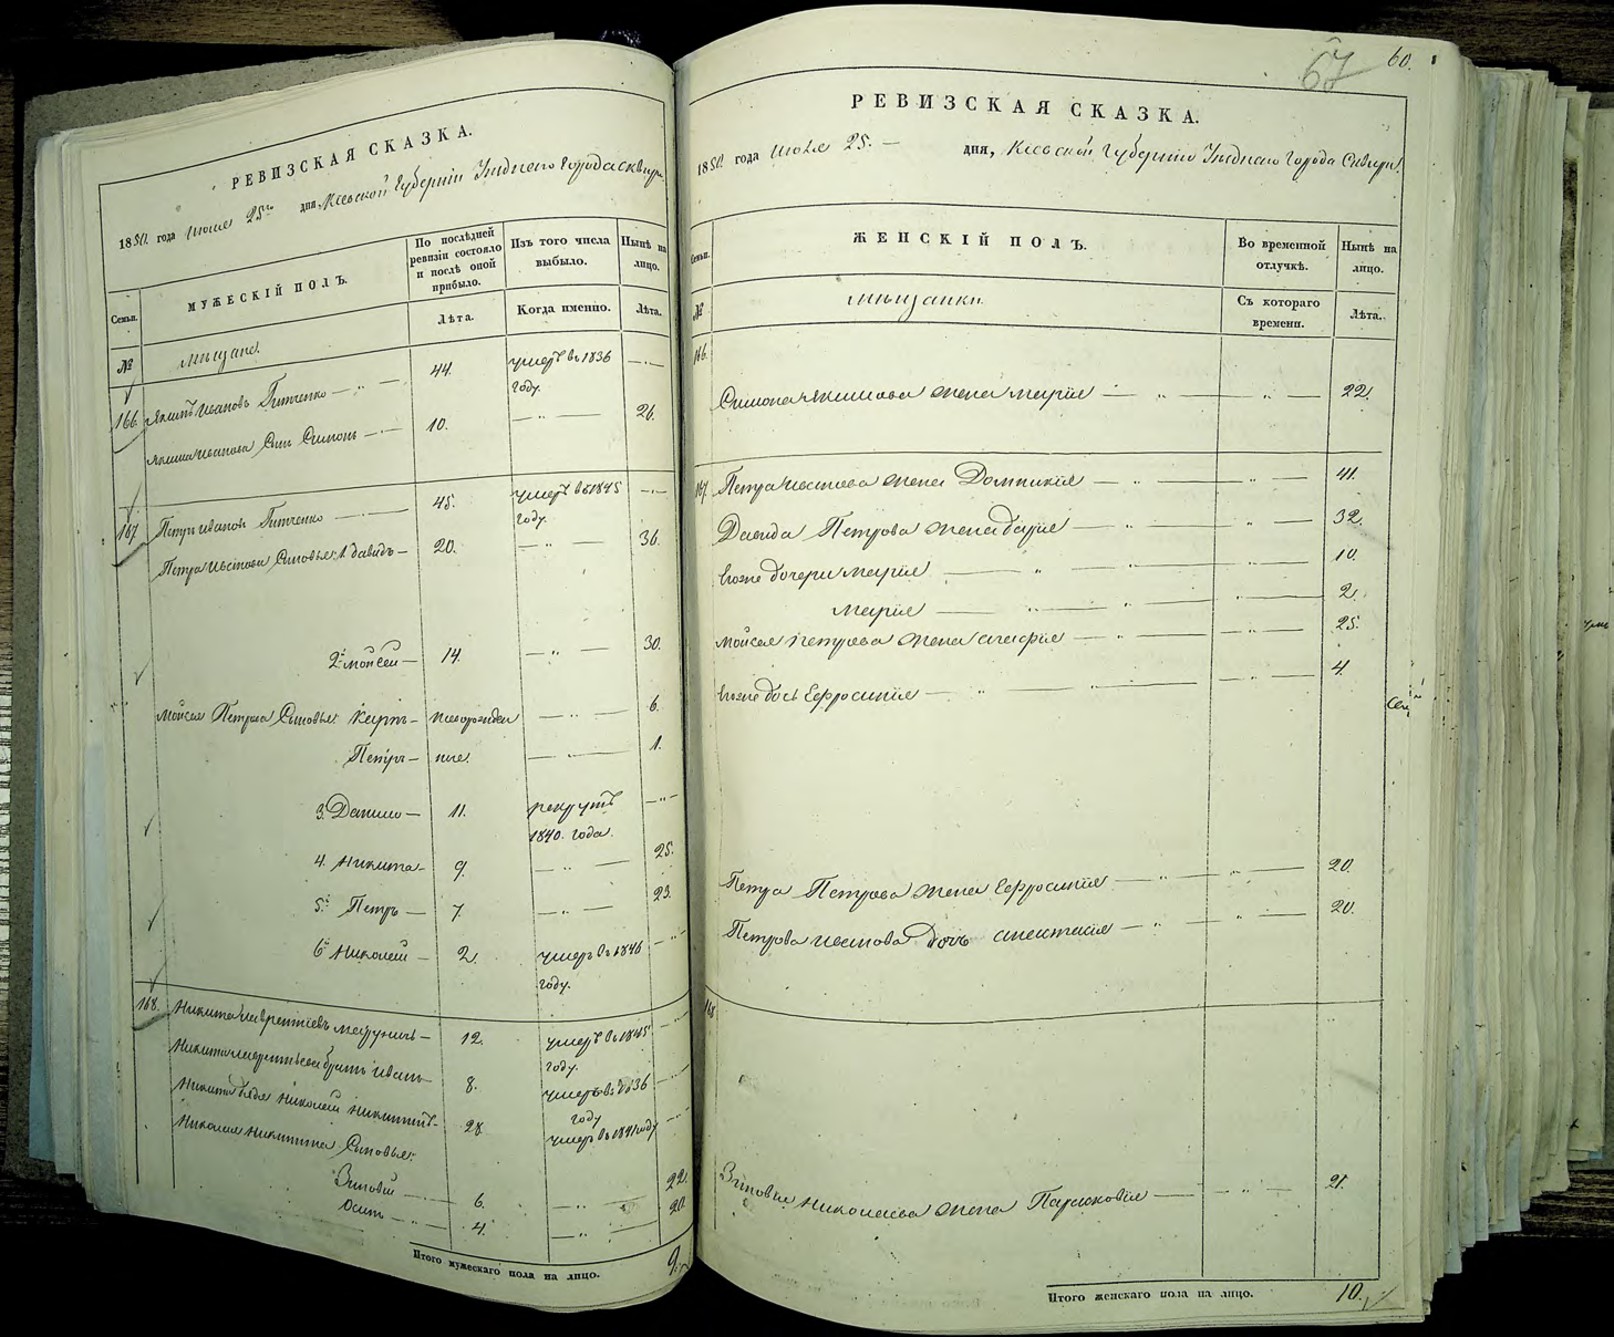 РЕВИЗСКАЯ СКАЗКА.
1850. года июля 25го дня Кіевской Губерніи Уѣзднаго Города Сквиры
Семьи.
МУЖЕСКІЙ ПОЛЪ.
По послѣдней ревизіи состояло и послѣ оной прибыло.
Изъ того числа выбыло.
Нынѣ на лицо.
№
мѣщане.
Лѣта.
Когда именно.
Лѣта.
166. Якимъ Ивановъ — 44. умеръ въ 1836 году.
Якима Иванова Сынъ Симонъ — 10. — 26.
167 Петръ Ивановъ — 45. умеръ въ 1845 году.
Петра Иванова Сыновья: 1. Давидъ — 20. — 36.
2й Мойсей — 14. — 30.
Мойсея Петрова Сыновья: — новорожден — 6.
Петръ — ные. — 1.
3. Данило — 11. рекрутъ 1840. года.
4. Никита — 9. — 25.
5й Петръ — 7. — 23.
6й Николай — 2. умеръ въ 1846 году.
168. Никита Лаврентіевъ — 12. умеръ въ 1845 году.
Никиты Лаврентьева братъ Иванъ — 8. умеръ въ 1836 году
Никиты дядя Николай Никитинъ — 28 умеръ въ 1841 году
Николая Никитина Сыновья:
Зиновій — 6. — 22.
Осипъ — 4. — 20.
Итого мужескаго пола на лицо. 9.
67 60.
РЕВИЗСКАЯ СКАЗКА.
1850. года июля 25. — дня, Кіевской Губерніи Уѣзднаго Города Сквиры.
Семьи.
ЖЕНСКІЙ ПОЛЪ.
Во временной отлучкѣ.
Нынѣ на лицо.
№
мѣщанки.
Съ котораго времени.
Лѣта.
166.
Симона Якимова жена Марія — 22.
167. Петра Иванова жена Домникія — 41.
Давида Петрова жена Дарія — 32.
его же дочери Марія — 10.
Марія — 2.
Мойсея Петрова жена Агафія — 25.
его же дочь Ефросинія — 4.
Петра Петрова жена Ефросинія — 20.
Петрова Иванова дочь Анастасія — 20.
168
Зиновія Николаева жена Парасковія — 21.
Итого женскаго пола на лицо. 10.